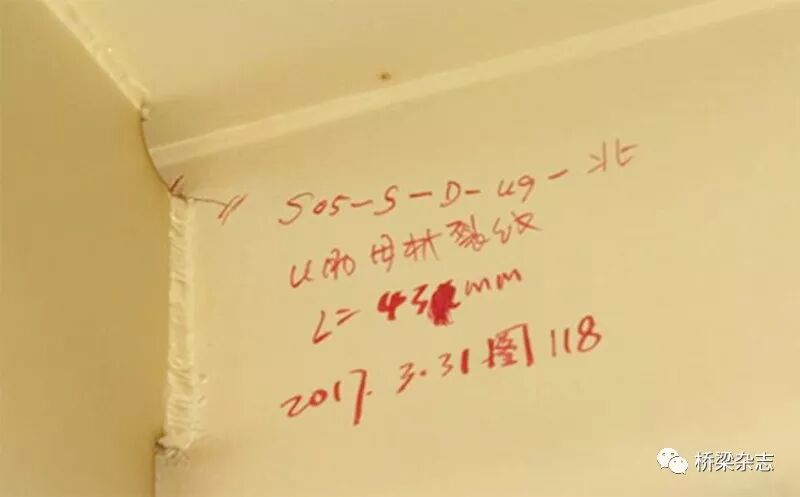 S05-S-D-U9-北
U肋母材裂纹
L=43 mm
2017.3.31图118
桥梁杂志